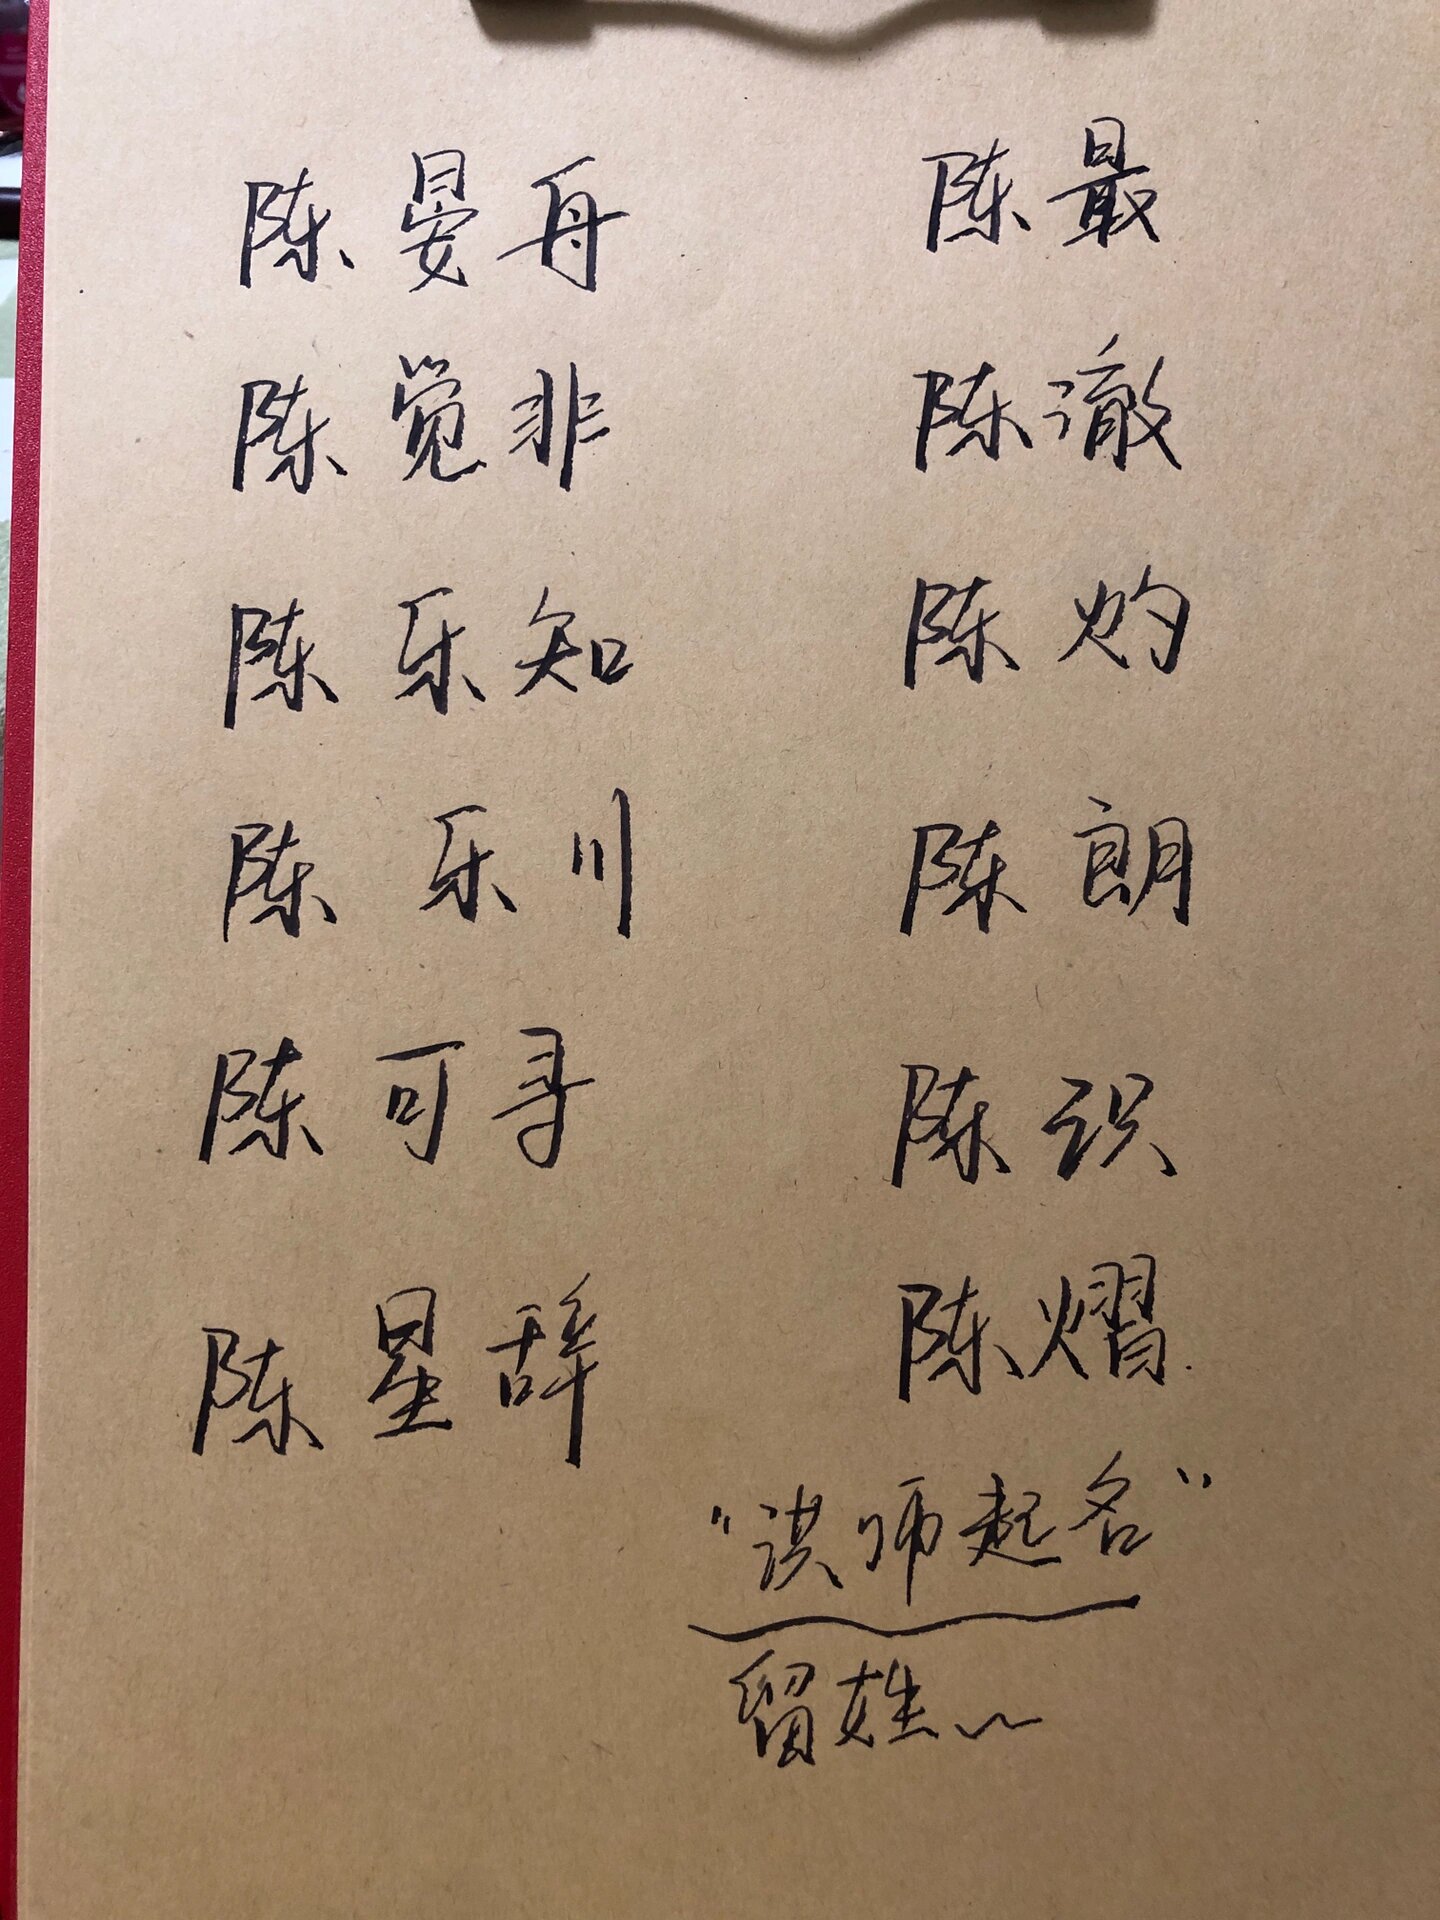 陈晏舟
陈觉非
陈乐知
陈乐川
陈可寻
陈星辞
陈最
陈澈
陈灼
陈朗
陈识
陈熠
“洪师起名”
留姓~~